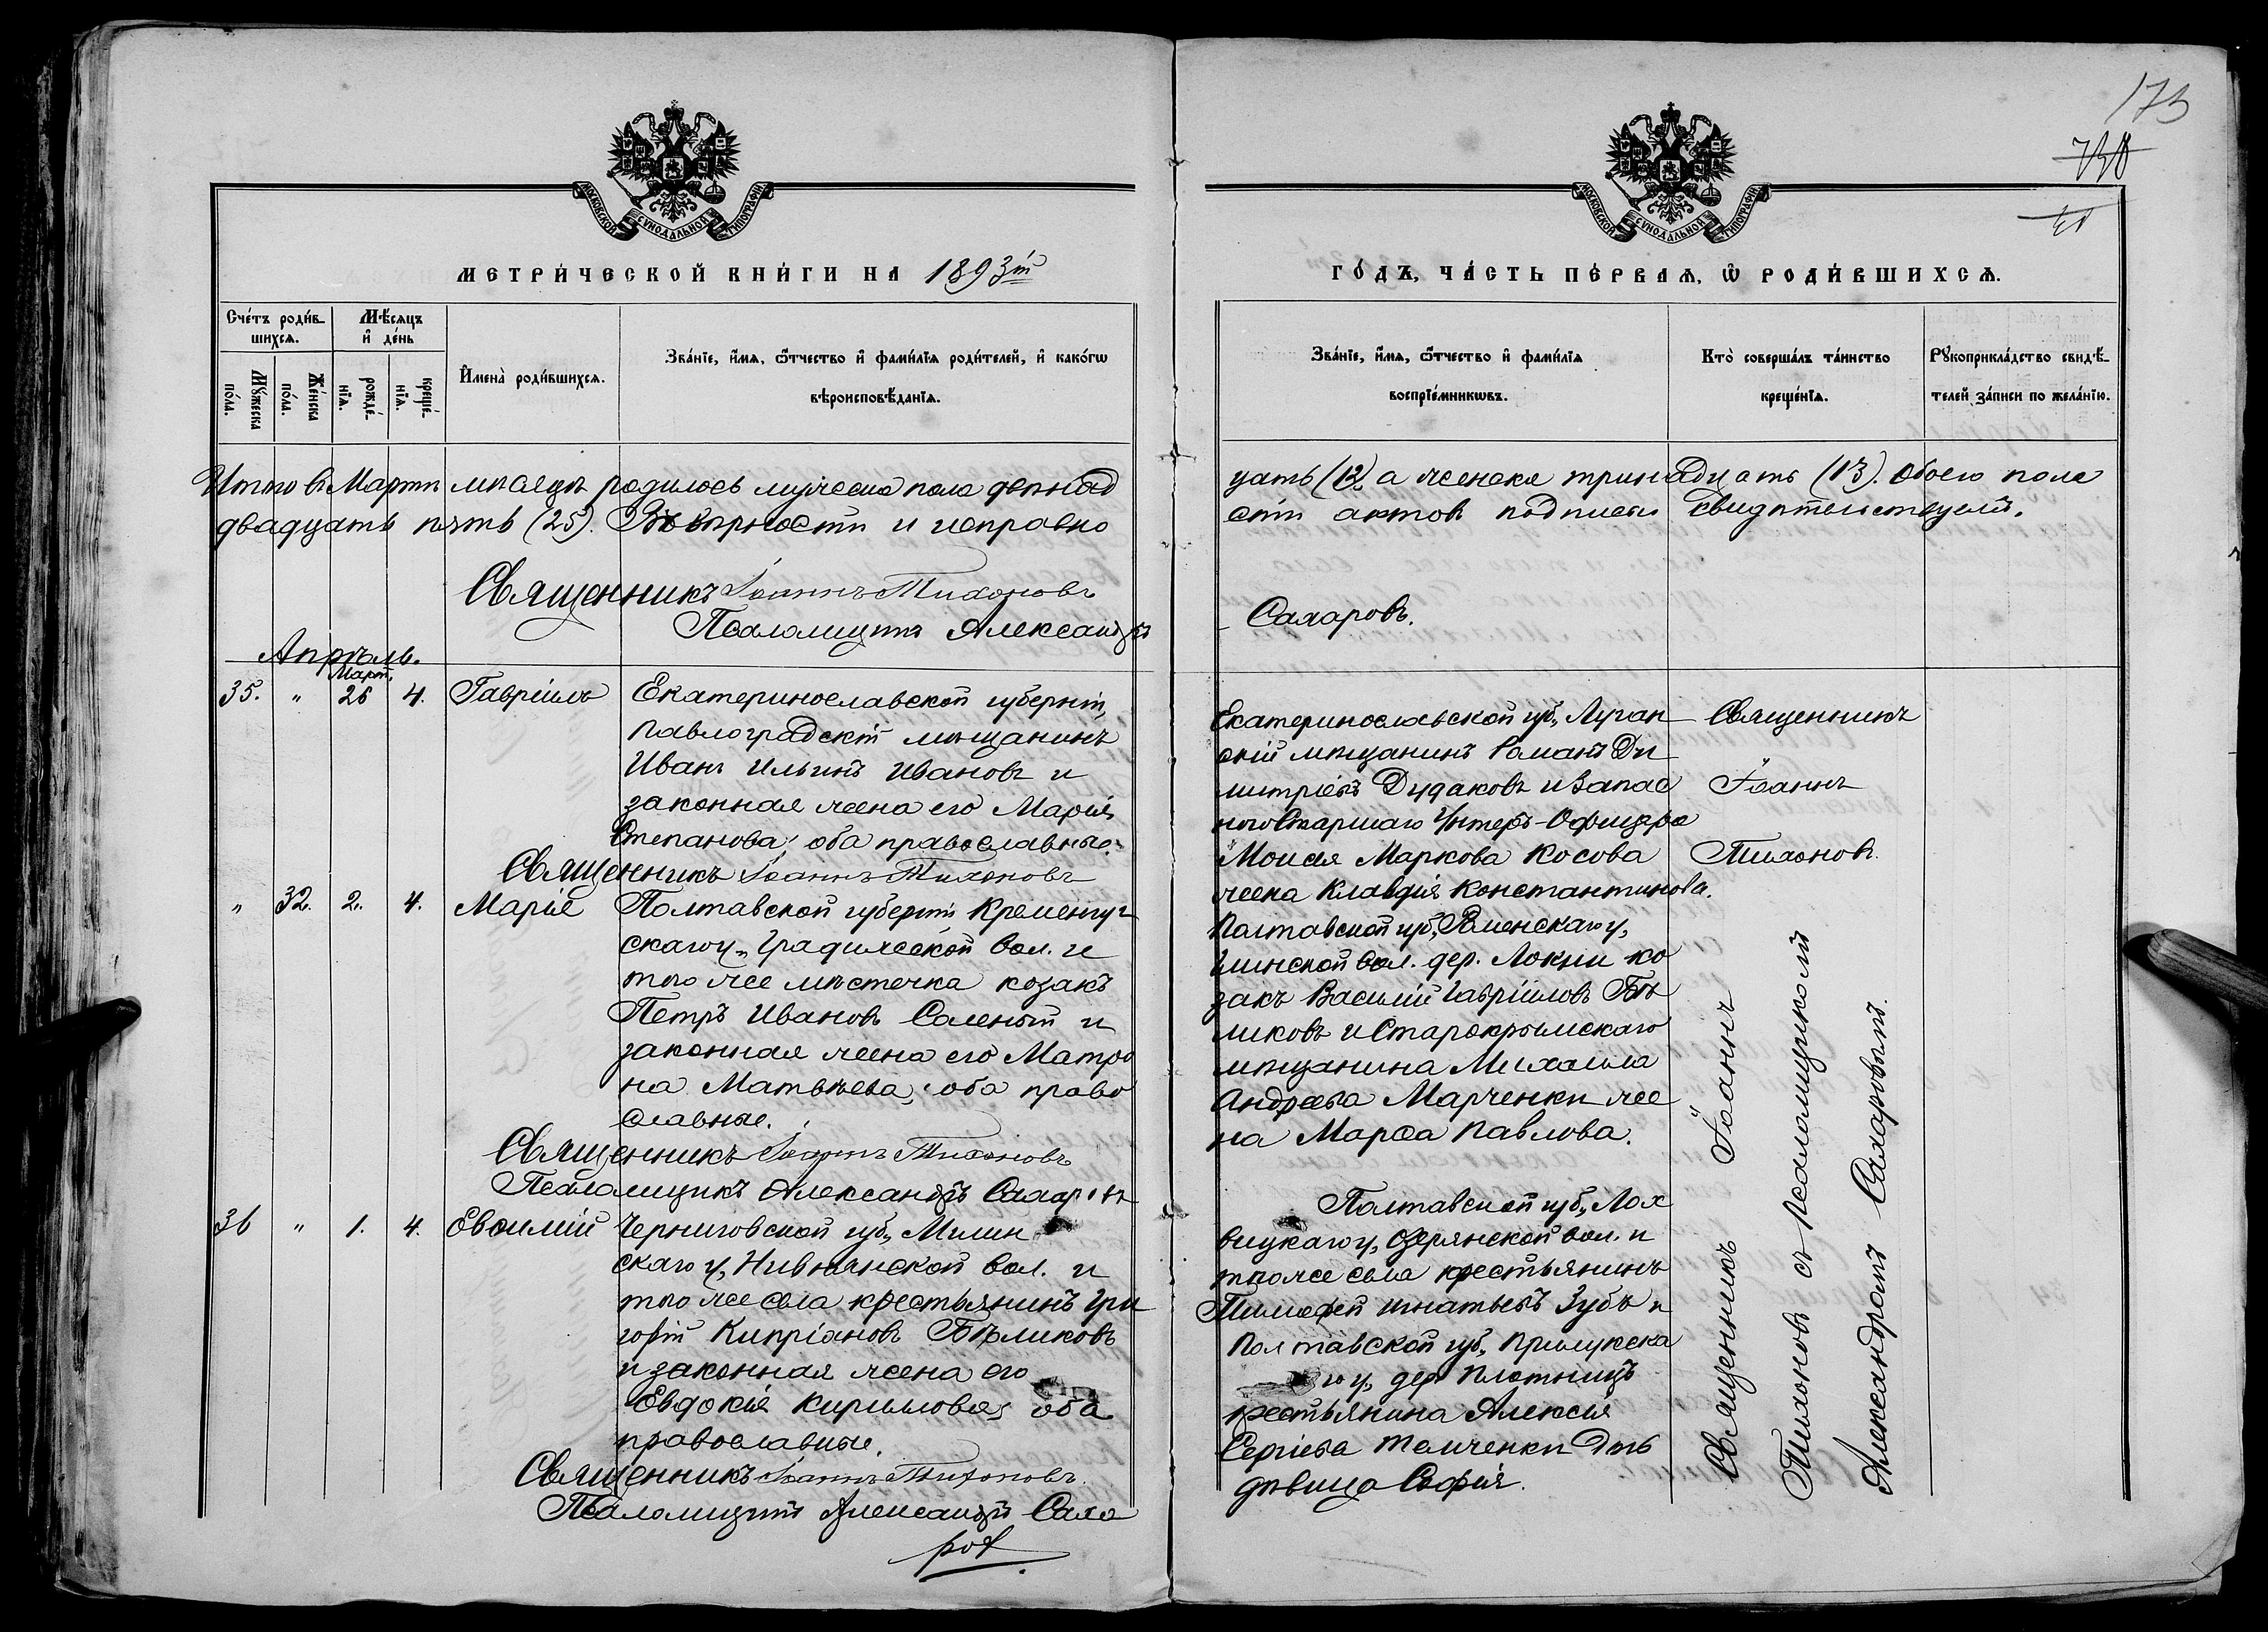 173
МОСКОВСКОЙ СѴНОДАЛЬНОЙ ТИПОГРАФІИ
МЕТРИ́ЧЕСКОЙ КНИ́ГИ НА 1893й
Сче́тъ роди́в-
шихсѧ.
Мѣ́сѧцъ
и҆ де́нь
Мꙋ́жеска
по́ла.
Же́нска
по́ла.
рожде́-
нїѧ.
креще́-
нїѧ.
И҆мена̀ роди́вшихсѧ.
Зва́нїе, и҆́мѧ, ѻ҆́тчество и҆ фами́лїѧ роди́телей, и҆ како́гѡ
вѣроисповѣ́данїѧ.
Итого въ Мартѣ мѣсяцѣ родилось мужеска пола двѣнад
двадцать пять (25). Въ вѣрности и исправно
Священникъ Іоаннъ Тихоновъ
Псаломщикъ Александръ
Апрѣль.
Март.
35. " 26 4. Гавріилъ Екатеринославской губерніи,
Павлоградскій мѣщанинъ
Иванъ Ильинъ Ивановъ и
законная жена его Марія
Степанова, оба православные.
Священникъ Іоаннъ Тихоновъ
" 32. 2. 4. Марія Полтавской губерніи Кременчуг
скаго у., Градижской вол. и
того же мѣстечка козакъ
Петръ Ивановъ Соленый и
законная жена его Матро
на Матвѣева, оба право
славные.
Священникъ Іоаннъ Тихоновъ
Псаломщикъ Александръ Сахаровъ
36 " 1. 4. Евфимій Черниговской губ., Мглин
скаго у., Нивнянской вол. и
того же села крестьянинъ Гри
горій Кипріановъ Бѣликовъ
и законная жена его
Евдокія Кирилова, оба
православные.
Священникъ Іоаннъ Тихоновъ.
Псаломщикъ Александръ Саха
ровъ
МОСКОВСКОЙ СѴНОДАЛЬНОЙ ТИПОГРАФІИ
ГО́ДЪ, ЧА́СТЬ ПЕ́РВАѦ, Ѡ҆ РОДИ́ВШИХСѦ.
Зва́нїе, и҆́мѧ, ѻ҆́тчество и҆ фами́лїѧ
воспрїе́мникѡвъ.
Кто̀ соверша́лъ та́инство
креще́нїѧ.
Рꙋкоприкла́дство свидѣ́-
телей за́писи по жела́нїю.
цать (12), а женска тринадцать (13). Обоего пола
сти актовъ подписомъ свидѣтельствуемъ.
Сахаровъ.
Екатеринославской губ., Луган
скій мѣщанинъ Романъ Ди
митріевъ Дудаковъ и Запас
ного Старшаго Унтеръ-Офицера
Моисея Маркова Косова
жена Клавдія Константинова.
Священникъ
Іоаннъ
Тихоновъ.
Полтавской губ., Роменскаго у,
Глинской вол. дер. Локни ко
закъ Василій Гавріиловъ Бѣ
ликовъ и Старокрымскаго
мѣщанина Михаила
Андреева Марченки же
на Марѳа Павлова.
Полтавской губ., Лох
вицкаго у, Озерянской вол. и
того же села крестьянинъ
Тимоѳей Игнатьевъ Зубъ и
Полтавской губ., Прилукска
го у, дер. Плотницъ
крестьянина Алексія
Сергіева Темченки дочь
дѣвица Софія.
Священникъ Іоаннъ
Тихоновъ съ Псаломщикомъ
Александромъ Сахаровымъ.